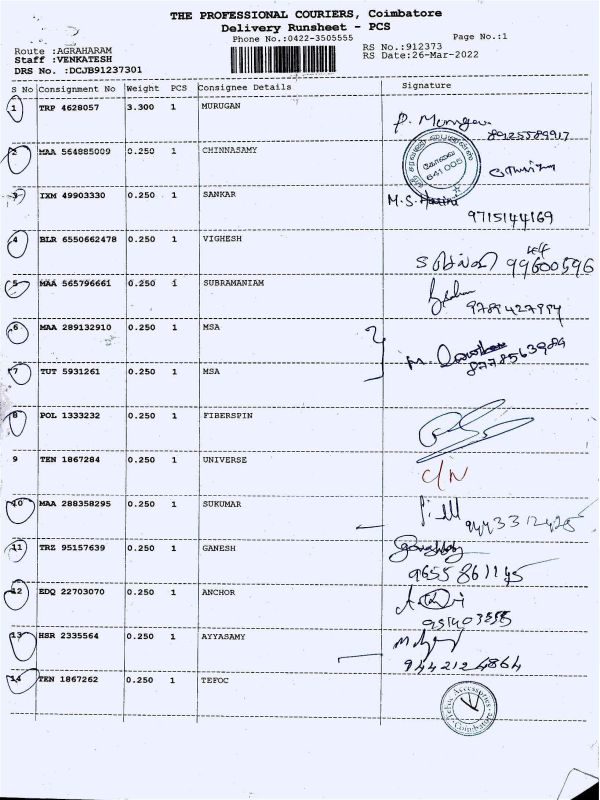 THE PROFESSIONAL COURIERS, Coimbatore
Delivery Runsheet - PCS
Phone No.:0422-3505555
Page No.:1
Route :AGRAHARAM
RS No.:912373
Staff :VENKATESH
RS Date:26-Mar-2022
DRS No. :DCJB91237301
S No Consignment No Weight PCS Consignee Details Signature
1 TRP 4628057 3.300 1 MURUGAN
P. Murugan
8925589917
2 MAA 564885009 0.250 1 CHINNASAMY
641 005
3 IXM 49903330 0.250 1 SANKAR
M.S. Harini
9715144169
4 BLR 6550662478 0.250 1 VIGHESH
self
99600596
5 MAA 565796661 0.250 1 SUBRAMANIAM
9789427994
6 MAA 289132910 0.250 1 MSA
M.
8778563989
7 TUT 5931261 0.250 1 MSA
8 POL 1333232 0.250 1 FIBERSPIN
9 TEN 1867284 0.250 1 UNIVERSE
C/N
10 MAA 288358295 0.250 1 SUKUMAR
9443312425
11 TRZ 95157639 0.250 1 GANESH
9655861145
12 EDQ 22703070 0.250 1 ANCHOR
13 HSR 2335564 0.250 1 AYYASAMY
9442124864
14 TEN 1867262 0.250 1 TEFOC
Tefoc Accessories
Coimbatore